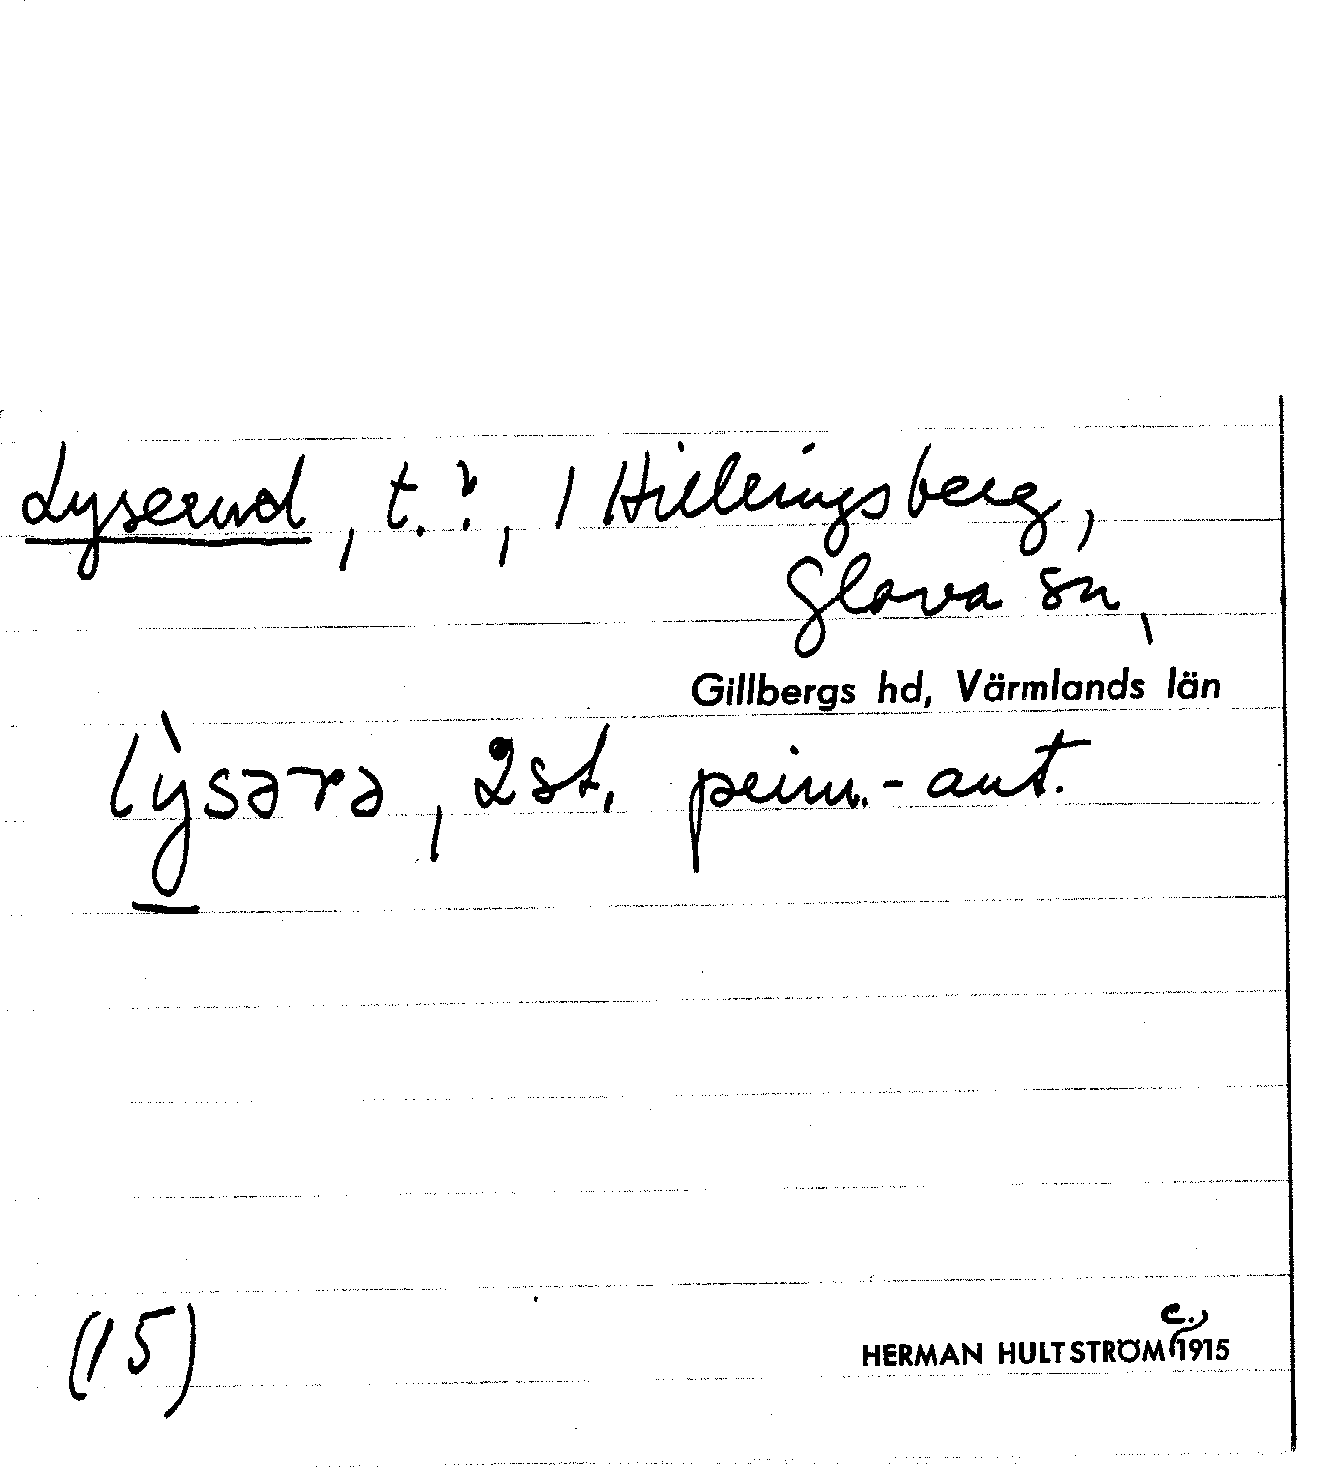 Lyserud, t.?, / Hillringsberg,
Glava sn,
Gillbergs hd, Värmlands län
lỳsərə, 2 st. prim.-ant.
(15)
c.,
HERMAN HULTSTRÖM 1915